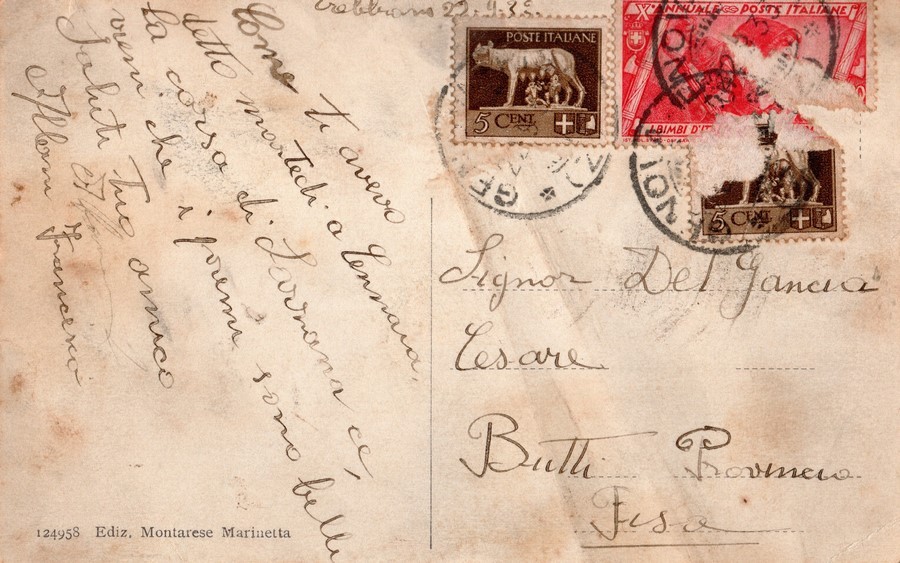 22.9.35.
Come ti avevo
detto martedì a Sarzana c'è,
la corsa di
vieni che i premi sono belli
Saluti tuo amico
Francesco
POSTE ITALIANE
5 CENT.
Xº ANNUALE POSTE ITALIANE
I BIMBI D'IT
5 CENT.
Signor Del Gancia
Cesare
Butti Provincia
Pisa
124958 Ediz. Montarese Marinetta